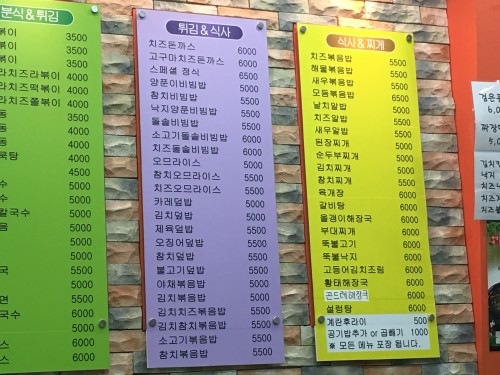 분식&튀김
볶이 3500
볶이 3500
볶이 4000
라치즈라볶이 4000
라치즈떡볶이 4000
라치즈쫄볶이 4000
동 4000
동 4000
국탕 4000
4000
4500
수 5000
수 5000
칼국수 5000
5000
5000
5000
국 5500
5000
면 5500
국수 6000
6000
5000
튀김&식사
치즈돈까스 6000
고구마치즈돈까스 6000
스페셜 정식 6500
양푼이비빔밥 5000
참치비빔밥 5500
낙지양푼비빔밥 5500
돌솥비빔밥 5500
소고기돌솥비빔밥 6000
치즈돌솥비빔밥 6000
오므라이스 5000
참치오므라이스 5500
치즈오므라이스 5500
카레덮밥 5000
김치덮밥 5000
제육덮밥 5500
오징어덮밥 5500
참치덮밥 5500
불고기덮밥 5500
야채볶음밥 5000
김치볶음밥 5000
김치치즈볶음밥 5500
김치참치볶음밥 5500
소고기볶음밥 5500
참치볶음밥 5500
식사&찌개
치즈볶음밥 5500
해물볶음밥 5500
새우볶음밥 5500
모듬볶음밥 6000
날치알밥 5500
치즈알밥 5500
새우알밥 5500
된장찌개 5500
순두부찌개 5500
김치찌개 5500
참치찌개 5500
육개장 6000
갈비탕 6000
올갱이해장국 6000
부대찌개 6000
뚝불고기 6000
뚝불낙지 6000
고등어김치조림 6000
황태해장국 6000
곤드레해장국 6000
설렁탕 6000
계란후라이 500
공기밥추가 or 곱빼기 1000
※ 모든 메뉴 포장 됩니다.
6,0
짜장
5,0
김치
낙지
치즈
치즈